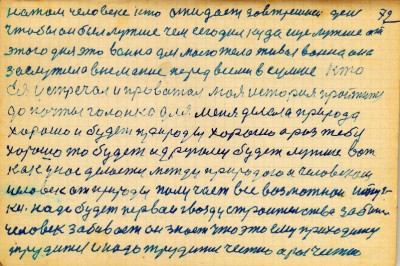 на том человеке кто ожидает завтрешнея дня 72
чтобы он был лучше чем сегодня куда еще лучше от
этого дня это война для мало жела живая воина она
заслужила внемание перед всеми в сумке кто
ся и стречал и проботал моя история простите
до почты голонка для меня делала природа
хорошо и будет природы хорошо а раз тебу
хорошо то будет и другому будет лутше вот
как у нас делаете между природою и человеком
человек от природы получает все возмотное
надо будет первай гвозд устроителства забит
человек забивает он знает что это ему приходится
трудится и надо трудится честно а раз честно